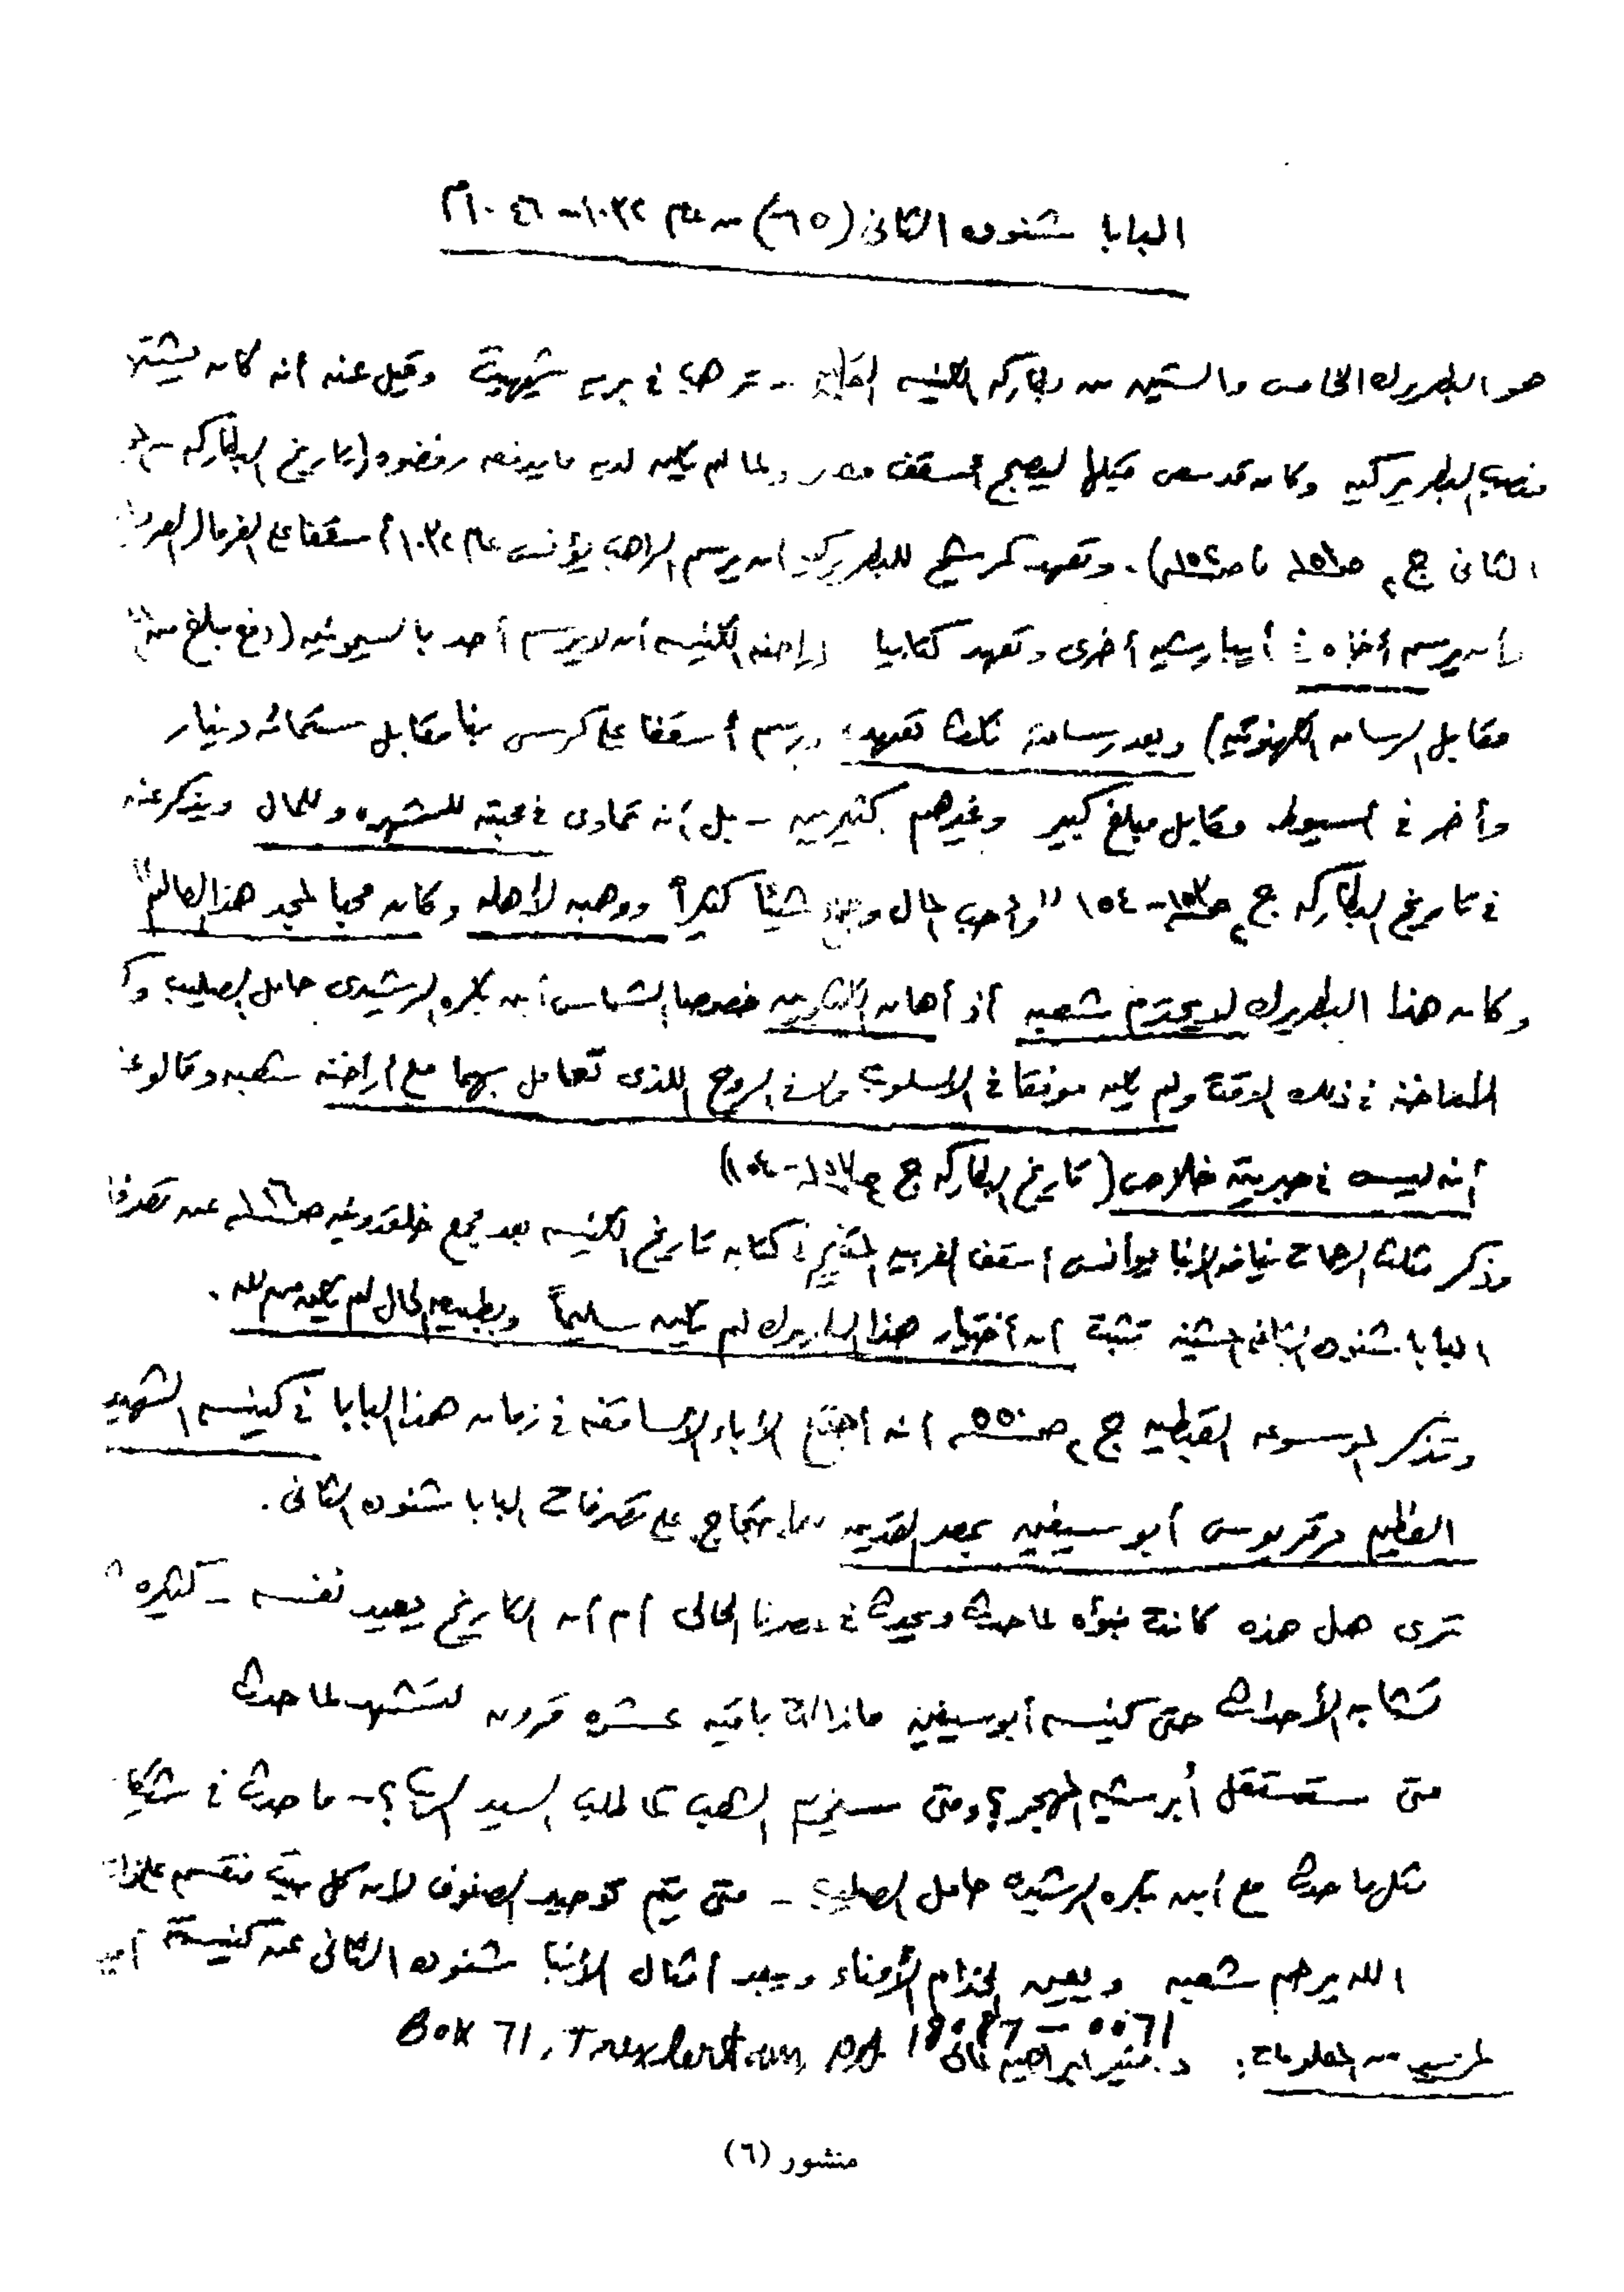 البابا شنوده الثانى (٦٥) من عام ١٠٣٢ - ١٠٤٦م
هو البطريرك الخامس والستين من بطاركه الكنيسه القبطيه - ترهب فى بريه شيهيت وقيل عنه أنه كان يشتهى
منصب البطريركيه وكان قد سعى قبلها ليصبح أسقف مصر ولما لم يكن لديه ما يدفعه رفضوه (تاريخ البطاركه
الثانى ج٢ ص١٥١، ص١٥٤). وتعهد كمرشح للبطريركيه أن يرسم الراهب يؤنس عام ١٠٣٢ أسقفا على الفرما
وأن يرسم أخاه فى أيبارشيه أخرى وتعهد كتابيا لأراخنه الكنيسه أن لا يرسم أحد بالسيمونيه (دفع مبلغ من
مقابل الرسامه الكهنوتيه) وبعد رسامته نكث تعهده ورسم أسقفا على كرسى بنا مقابل ستمائه دينار
وأخر فى أسيوط مقابل مبلغ كبير وغيرهم كثيرين - بل أنه تمادى فى محبته للشهره وللمال ويذكر عنه
فى تاريخ البطاركه ج٢ ص١٥٣ - ١٥٤ "وأحب المال وجمع شيئا كثيراً ووهبه لأهله وكان محبا لمجد هذا العالم"
وكان هذا البطريرك لا يحترم شعبه أذ أهان الكثيرين خصوصا الشماس أبن بكره الرشيدى حامل الصليب
المعاضنه فى ذلك الوقت ولم يكن موفقا فى الاسلوب ولا فى الروح اللذى تعامل بهما مع أراخنه شعبه وقالوا
أنه ليس فى جبريته خلاص (تاريخ البطاركه ج٢ ص١٥٣ - ١٥٤)
وذكر مثلث الرحمات نيافه الانبا يوأنس أسقف الغربيه المتنيح فى كتابه تاريخ الكنيسه بعد مجمع خلقدونيه ص١٢٦ عن تصرفات
البابا شنوده الثانى المشينه تثبت أن أختيار هذا البطريرك لم يكن سليماً وبطبيعه الحال لم يكن من الله.
وتذكر الموسوعه القبطيه ج٢ ص٥٥٠ أنه أجتمع الأباء الأساقفه فى زمان هذا البابا فى كنيسه الشهيد
العظيم مرقريوس أبو سيفين بمصر القديمه للاحتجاج على تصرفات البابا شنوده الثانى.
ترى هل هذه كانت نبوأه لما حدث ويحدث فى عصرنا الحالى أم أن التاريخ يعيد نفسه - كثيره
تشابه الأحداث حتى كنيسه أبو سيفين مازالت باقيه عشره قرون لتشهد لما حدث
متى ستستقل أبرشيه المهجر؟ ومتى سنخدم الشعب كما طلب السيد الرب؟ - ما حدث فى
مثل ما حدث مع أبن بكره الرشيدى حامل الصليب - متى يتم توحيد الصفوف لان كل بيت منقسم على ذاته
الله يرحم شعبه ويعين الخدام الأمناء ويبعد أمثال الأنبا شنوده الثانى عن كنيسته أمين
لمزيد من المعلومات: د. منير ابراهيم Box 71, Trexlertown, PA 18087 - 0071
منشور (٦)